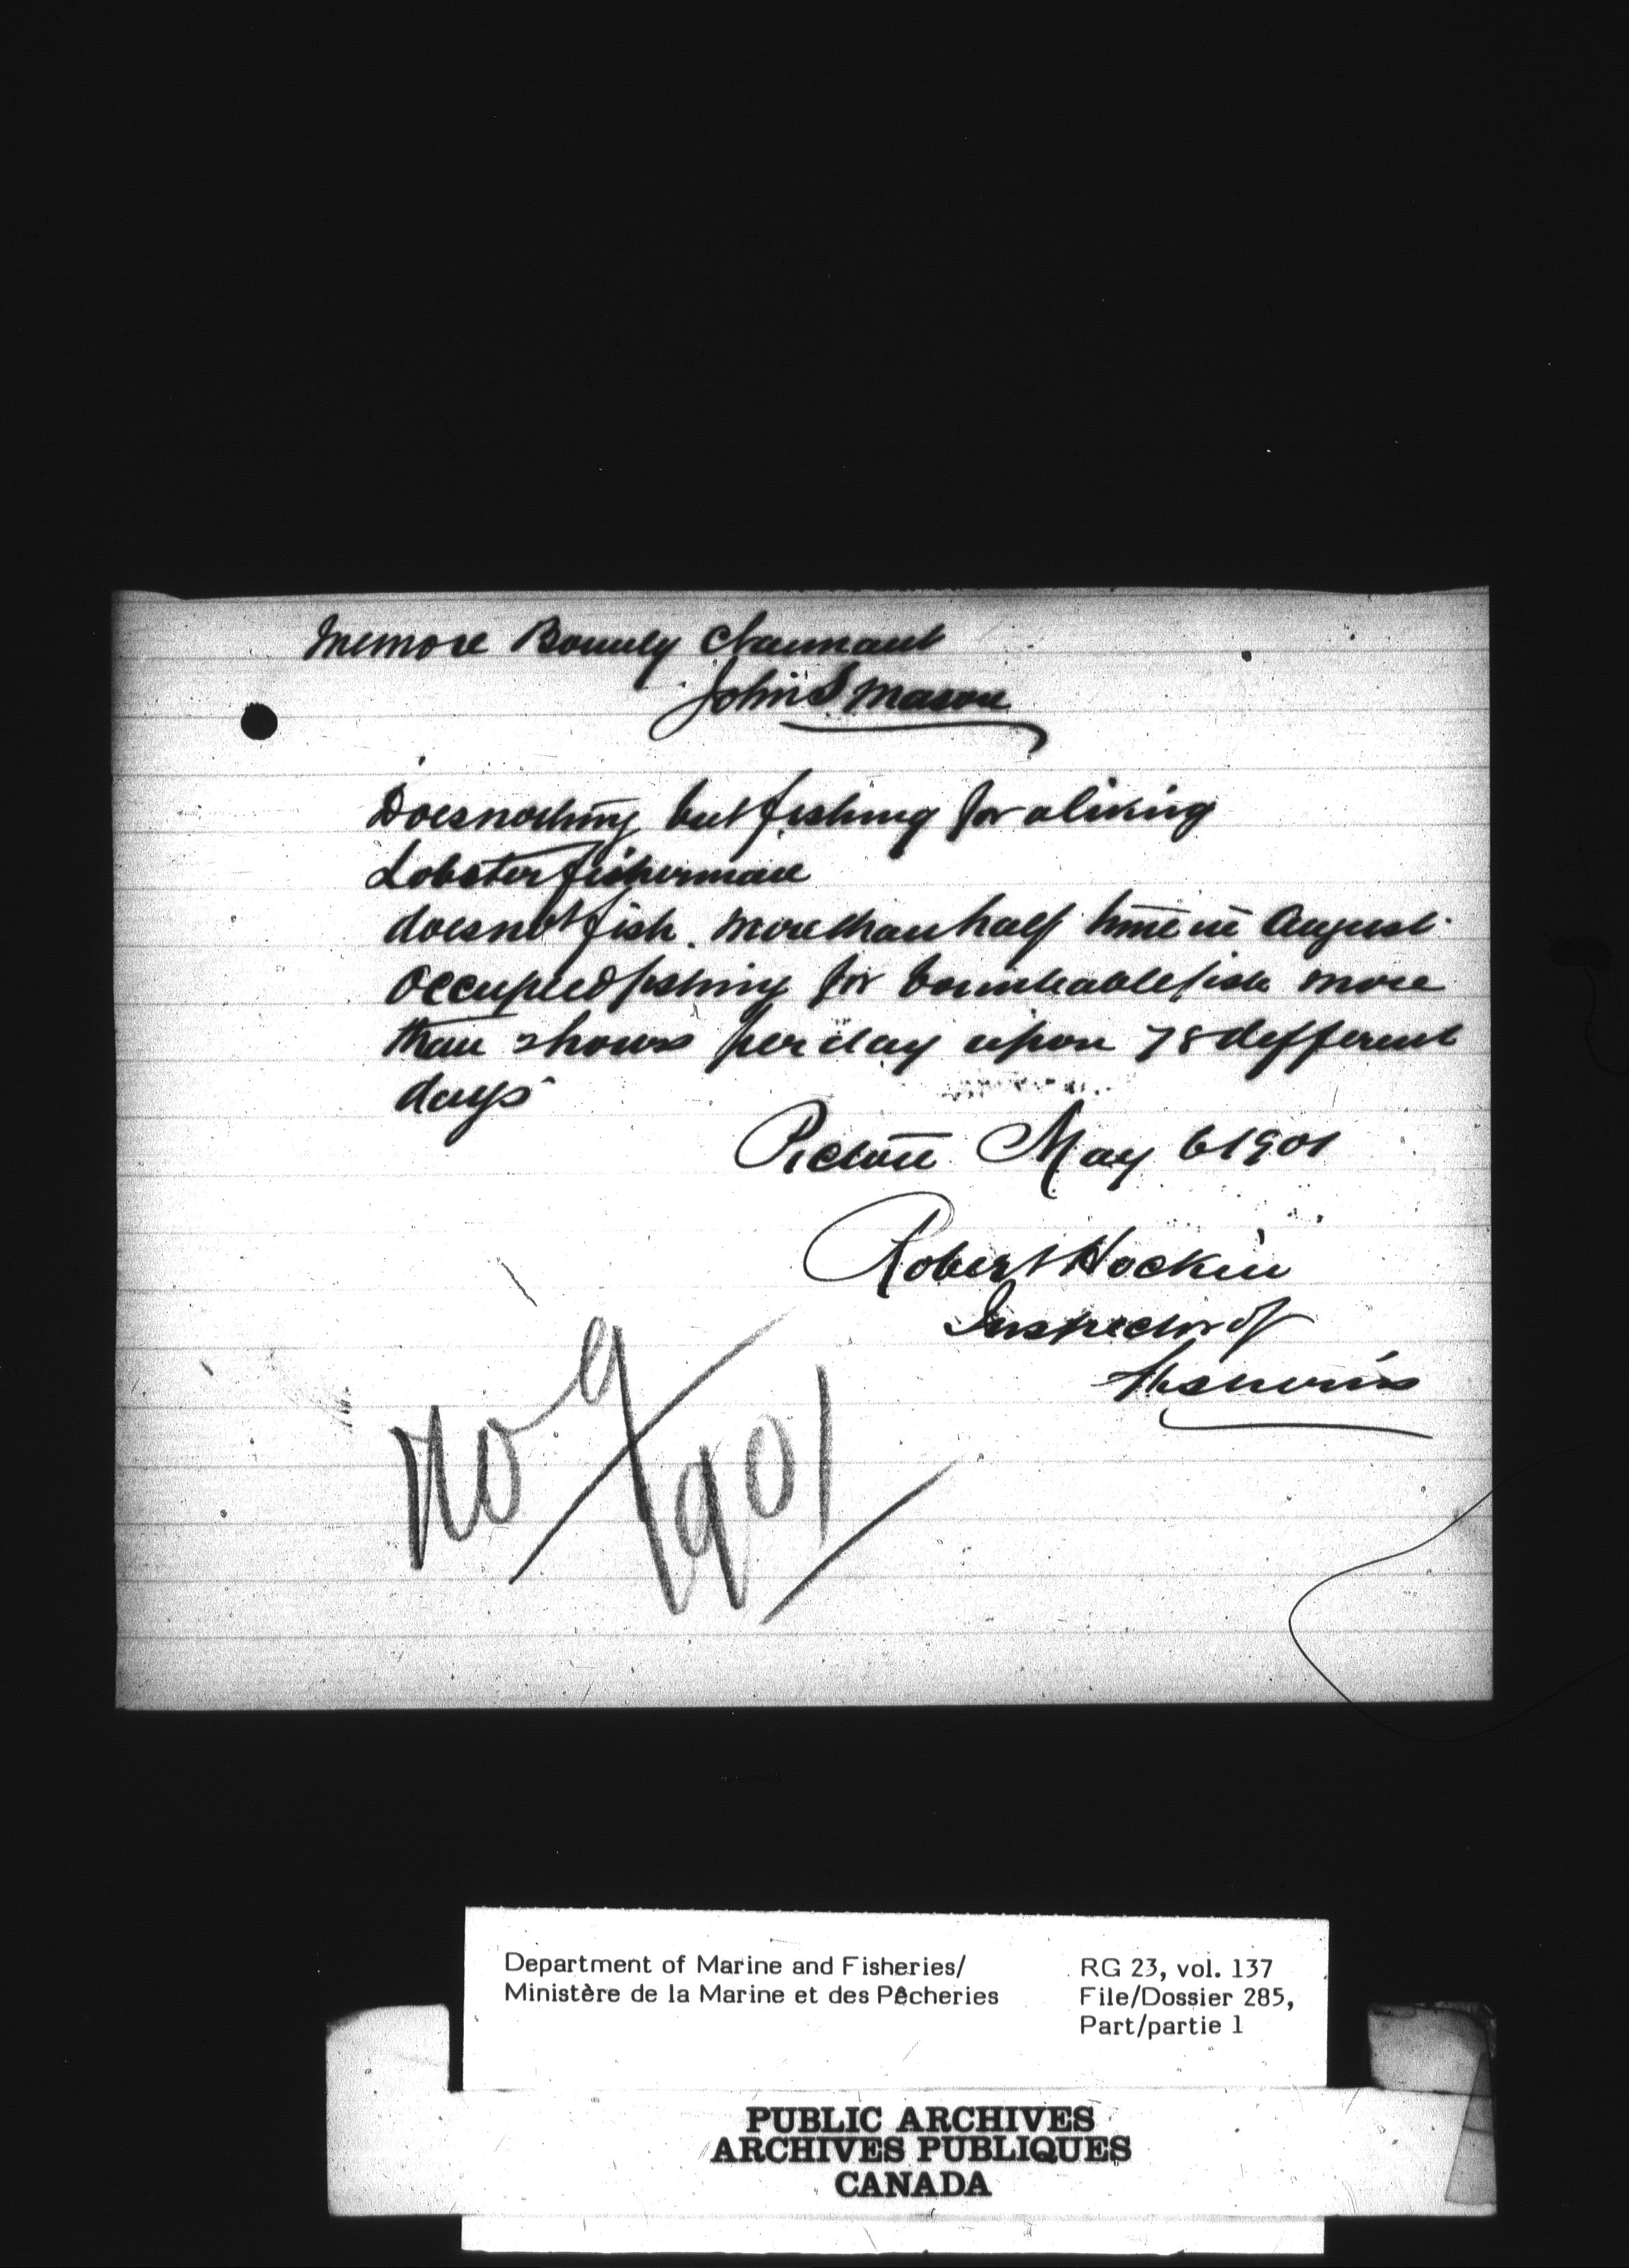 Memore Bounty Claimant
John S Mason
Does nothing but fishing for a living
Lobster fisherman
does not fish more than half time in August
Occupied fishing for bounteable fish more
than 2 hours per day upon 78 different
days
Pictou May 6 1901
Robert Hockin
Inspector of
Fisheries
No 9
1901
Department of Marine and Fisheries/
Ministère de la Marine et des Pêcheries
RG 23, vol. 137
File/Dossier 285,
Part/partie 1
PUBLIC ARCHIVES
ARCHIVES PUBLIQUES
CANADA